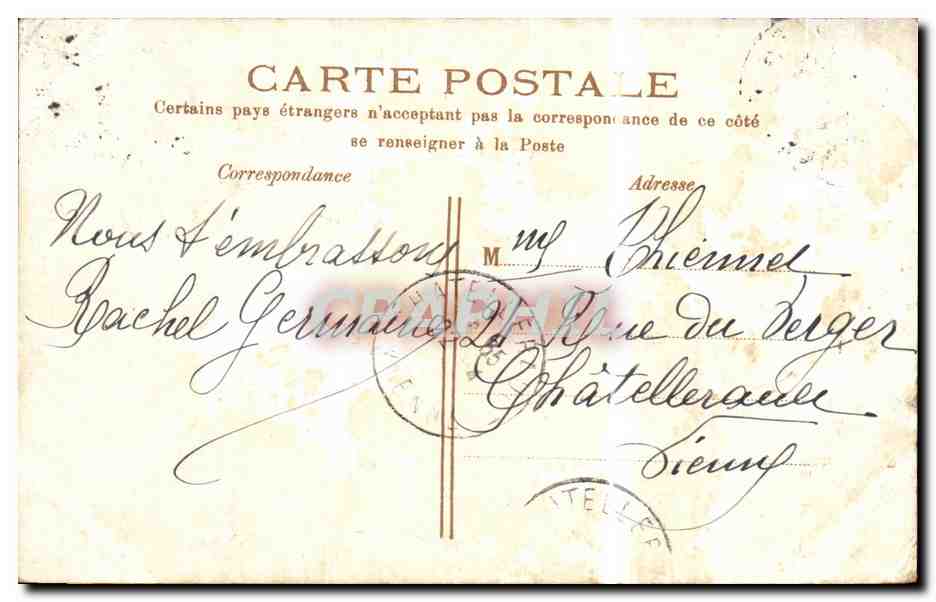 CARTE POSTALE
Certains pays étrangers n'acceptant pas la correspondance de ce côté
se renseigner à la Poste
Correspondance
Nous t'embrassons
Rachel Germaine
Adresse
M me
21 Rue du Verger
Châtellerault
Vienne
CHATELLERAULT
VIENNE
CHATELLER